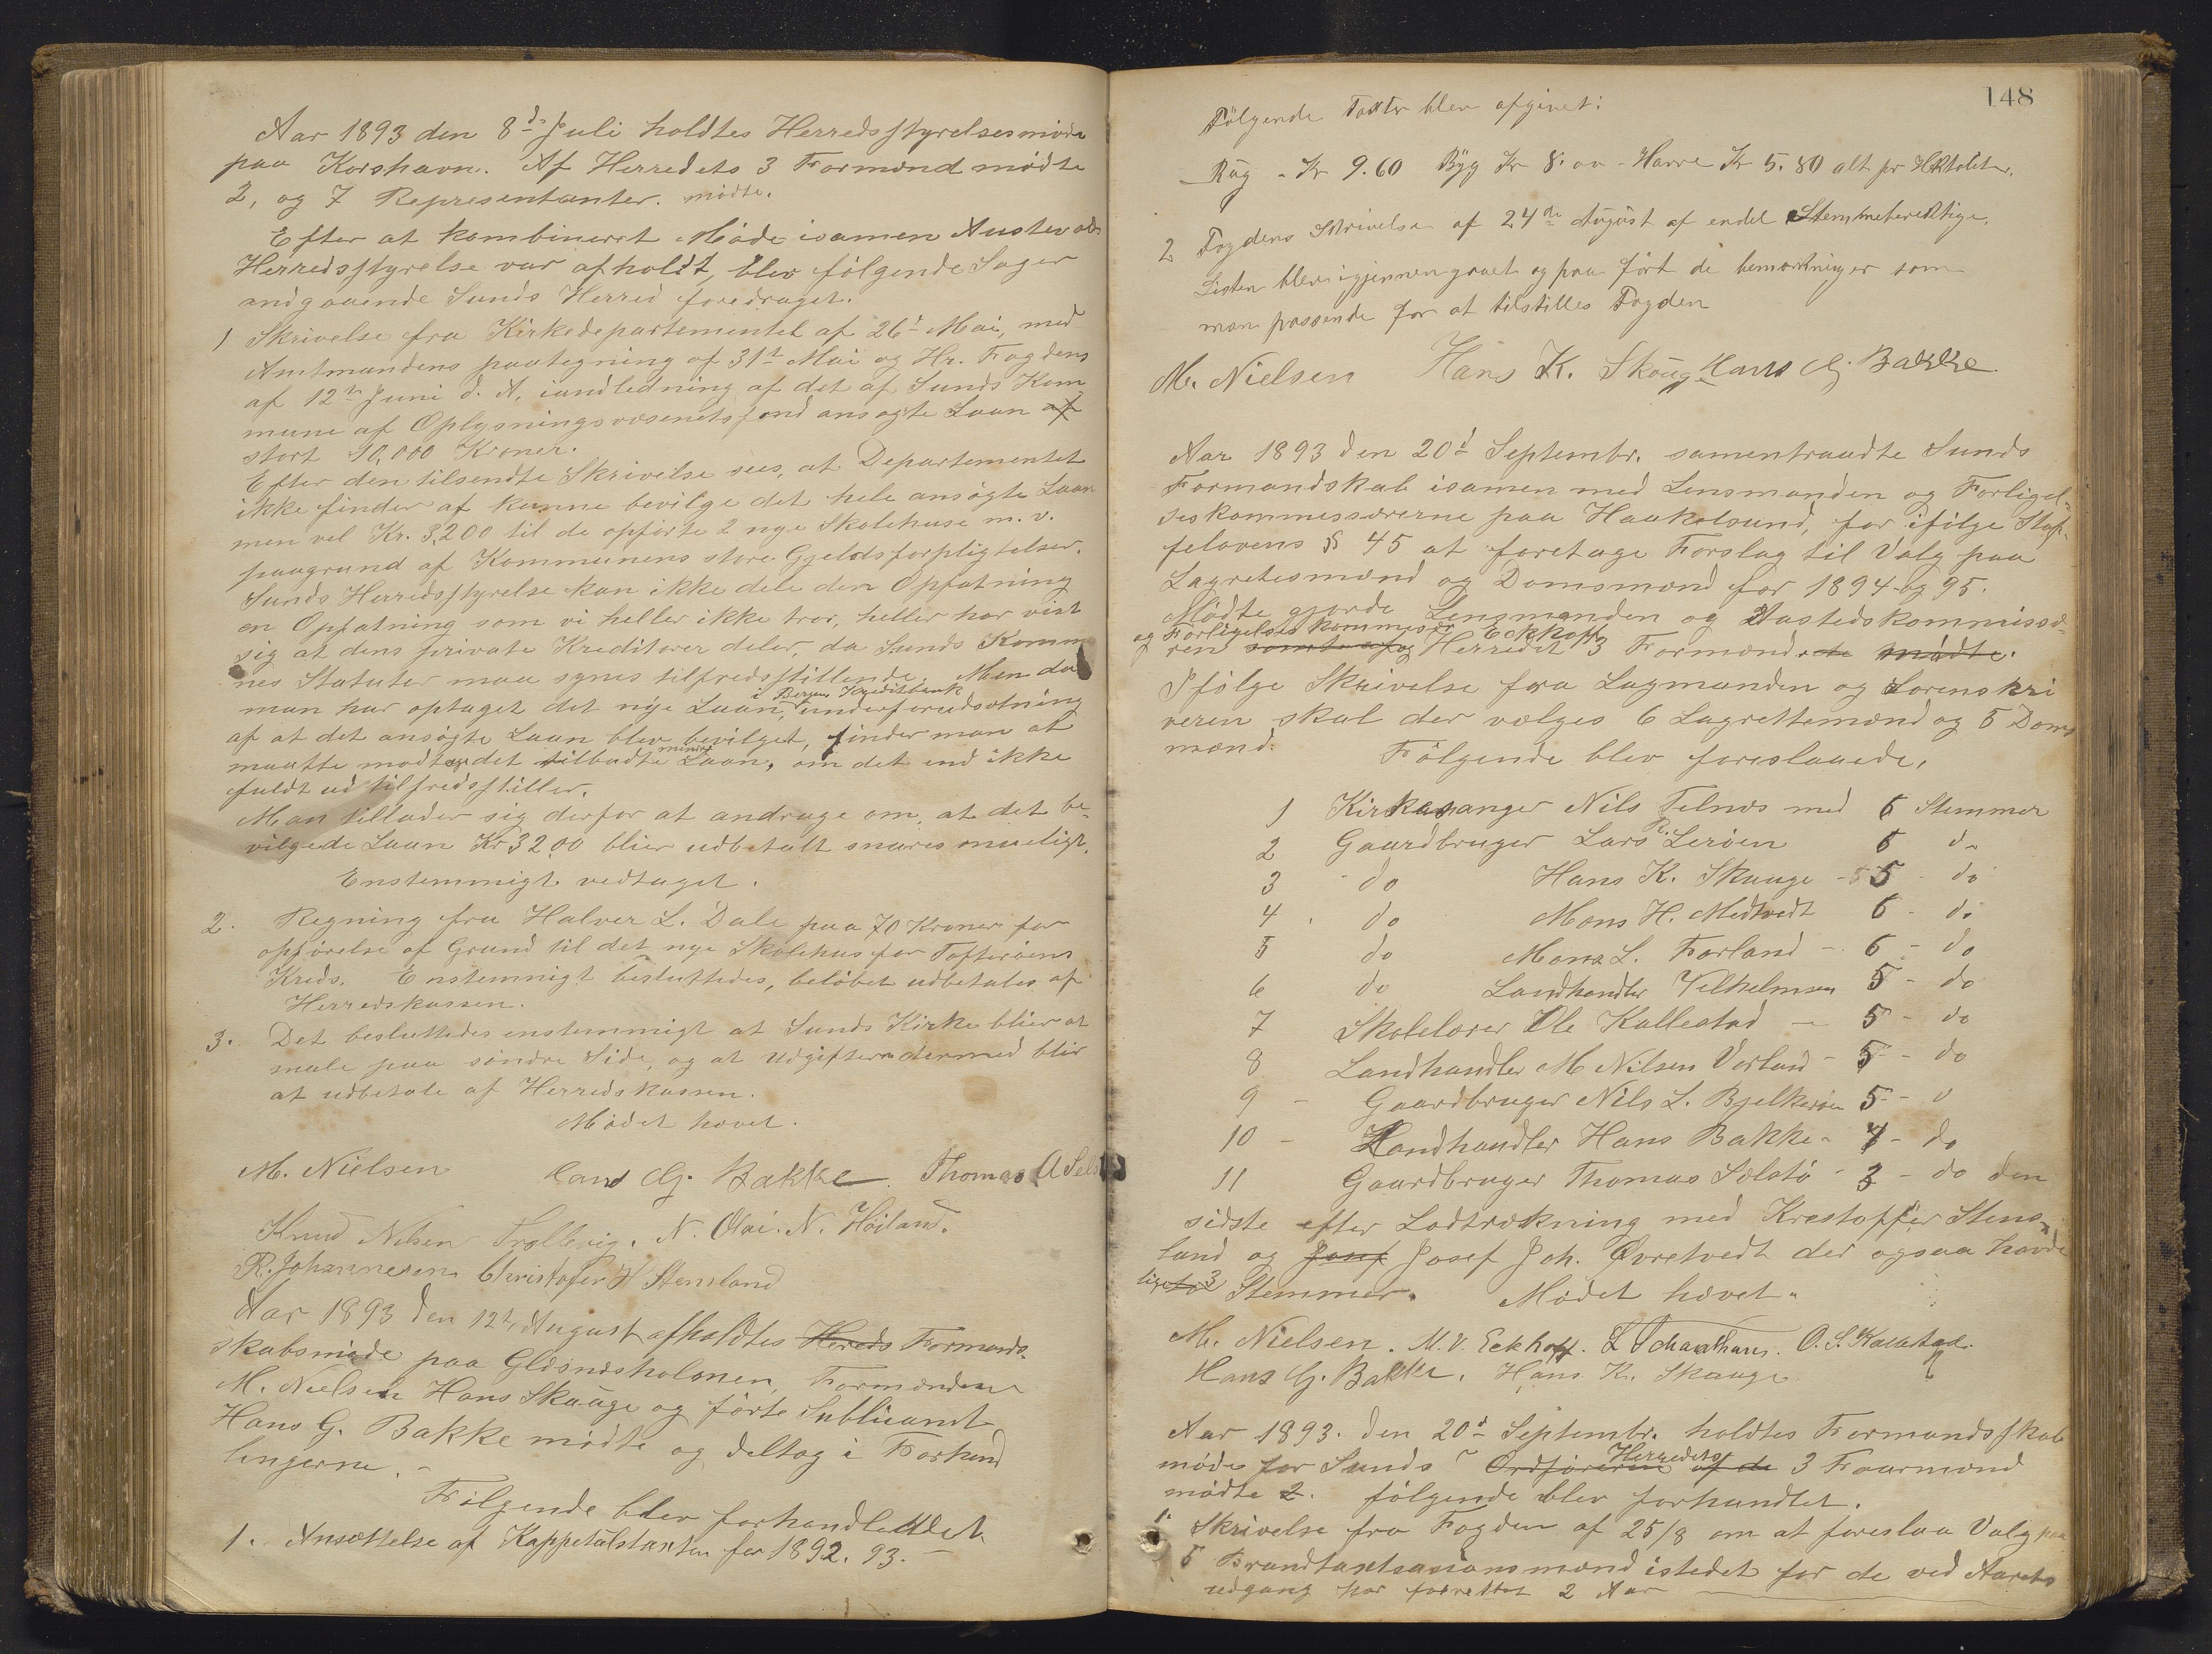 Aar 1893 den 8de Juli holdtes Herredsstyrelsesmøde
paa Korshavn. Af Herredets 3 Formænd mødte
2, og 7 Representanter. mødte.
Efter at kombineret Møde isamen Austevols
Herredsstyrelse var afholdt, blev følgende Sager
andgaaende Sunds Herred foredraget.
1 Skrivelse fra Kirkedepartementet af 26de Mai, med
Amtmandens paategning af 31te Mai og Hr. Fogdens
af 12te Juni d. A. iandledning af det af Sunds Kom
mune af Oplysningsvæsenets fond ansøgte Laan af
stort 10,000 Kroner.
Efter den tilsendte Skrivelse sees, at Departementet
ikke finder af kunne bevilge det hele ansøgte Laan
men vel Kr. 3,200 til de opførte 2 nye Skolehuse m. v.
paagrund af Kommunens store Gjeldsforpligtelser.
Sunds Herredsstyrelse kan ikke dele den Opfatning
en Opfatning som vi heller ikke tror, heller har vist
sig at dens private Kreditorer deler, da Sunds Komm
nes Statuter maa synes tilfredsstillende. Men da
man har optaget det nye Laan, i Bergens Kreditbank underforudsætning
af at det ansøgte Laan blev bevilget, finder man at
maatte modtage det tilbudte mindre Laan, om det end ikke
fuldt ud tilfredsstiller.
Man tillader sig derfor at andrage om, at det be-
vilgede Laan Kr 3200 bliver udbetalt snares mueligt.
Enstemmigt vedtaget.
2. Regning fra Halver L. Dale paa 70 Kroner for
opførelse af Grund til det nye Skolehus for Tofterøens
Kreds. Enstemmigt besluttedes, beløbet udbetales af
Herredskassen.
3. Det besluttedes enstemmigt at Sunds Kirke bliver at
male paa søndre Side, og at Udgifterne dermed blir
at udbetale af Herredskassen.
Mødet hævet.
M. Nielsen Hans G. Bakke. Thomas A Sels
Knud Nilsen Trollevig. N. Olai. N. Høiland.
R. Johannesen Christofer H Stensland
Aar 1893 den 12te August afholdtes Hereds Formands-
skabsmøde paa Glesnesholmen, Formændene
M. Nielsen Hans Skauge og førte Subliuant
Hans G. Bakke mødte og deltog i Forhand
lingerne.
Følgende blev forhandlet
1. Ansættelse af Kappetalstaxten for 1892. 93.
148
Følgende Taxter blev afgivet:
Rug - Kr 9.60 Byg Kr 8.00 - Havre Kr 5.80 alt pr Hektoliter.
2 Fogdens Skrivelse af 24de August af endel Stemmeberettige.
Listen blev igjennemgaaet og paa ført de bemærkninger som
man passende for at tilstilles Fogden
M. Nielsen Hans K. Skauge Hans G. Bakke
Aar 1893 den 20de Septembr. samentraadte Sunds
Formandskab isamen med Lensmanden og Forligel-
seskommesærerne paa Haakelsund, for ifølge Staf-
felovens § 45 at foretage Forslag til Valg paa
Lagretesmænd og Domsmænd for 1894 og 95.
Mødte gjorde Lensmanden og Aastedskommissæ-
og Forligelses kommesær Eckhoff
ren samt af og Herredet 3 Formænd. de mødte.
Ifølge Skrivelse fra Lagmanden og Sorenskri
veren skal der vælges 6 Lagrettemænd og 5 Doms
mænd.
Følgende blev foreslaaede,
1 Kirkesanger Nils Telnes med 6 Stemmer
2 Gaardbruger Lars P. Lerøen 6 do
3 do Hans K. Skauge - 5 - do
4 do Mons H. Medtvedt 6 - do
5 do Mons L. Forland - 6 - do
6 do Landhandler Vilhelmsen 5 - do
7 Skolelærer Ole Kallestad - 5 - do
8 Landhandler M Nilsen Vorland - 5 - do
9 - Gaardbruger Nils L. Bjelkerøen 5 - d
10 - Landhandler Hans Bakke - 4 - do
11 Gaardbruger Thomas Selstø - 3 - do den
sidste efter Lodtrækning med Krestoffer Stens-
land og Josef Josef Joh. Øvretvedt der ogsaa havde
ligeto 3 Stemmer. Mødet hævet.
M. Nielsen. M. V. Eckhoff. O. S. Kallestad.
Hans G. Bakke. Hans K. Skauge
Aar 1893. den 20de Septembr. holdtes Formandsskab
møde for Sunds Ordføreren Herredets af de 3 Foarmænd
mødte 2. følgende blev forhandlet.
1. Skrivelse fra Fogden af 25/8 om at foreslaa Valg paa
5 Brandtaxtasionsmænd istedet for de ved Aarets
udgang har forrettet 2 Aar